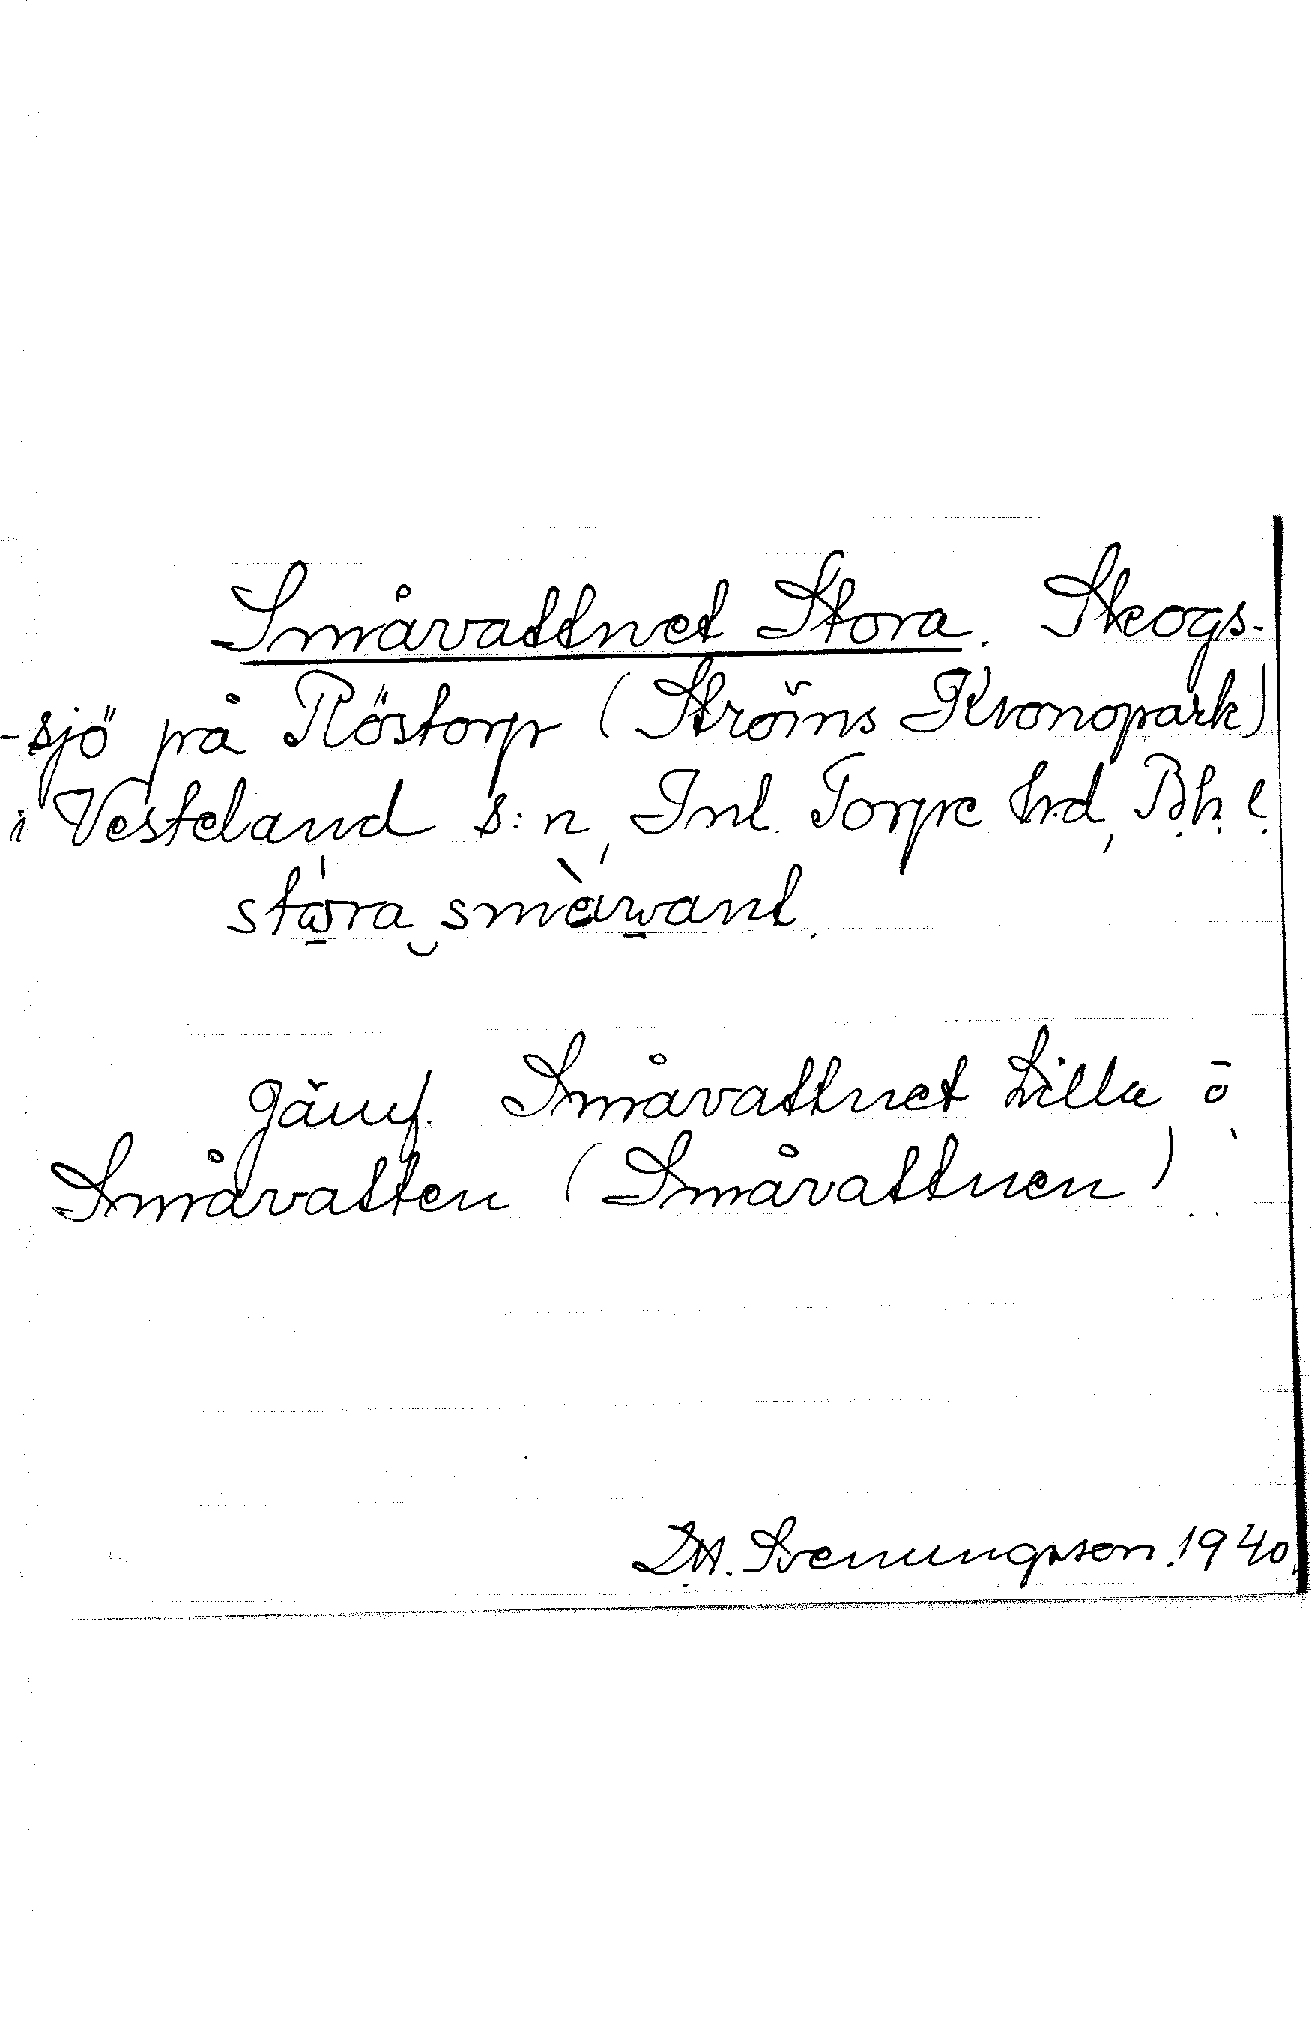 Småvattnet Stora. Skogs-
-sjö på Röstorp (Ströms Kronopark)
i Vesteland s:n, Inl. Torpe hrd, B.h.l.
stora småvant.
Jämf. Småvattnet Lilla o
Småvatten (Småvattnen)
D.H. Svenungsson. 1940.